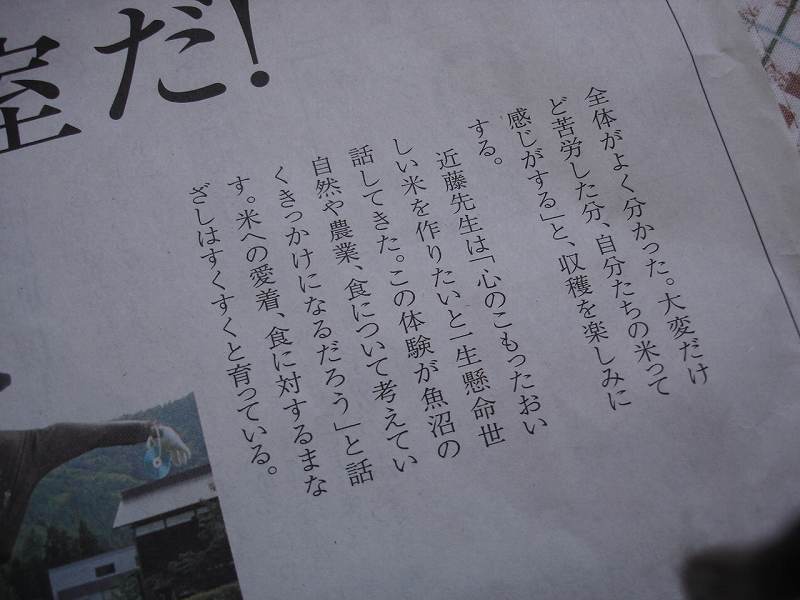 室だ!
全体がよく分かった。大変だけ
ど苦労した分、自分たちの米って
感じがする」と、収穫を楽しみに
する。
近藤先生は「心のこもったおい
しい米を作りたいと一生懸命世
話してきた。この体験が魚沼の
自然や農業、食について考えてい
くきっかけになるだろう」と話
す。米への愛着、食に対するまな
ざしはすくすくと育っている。